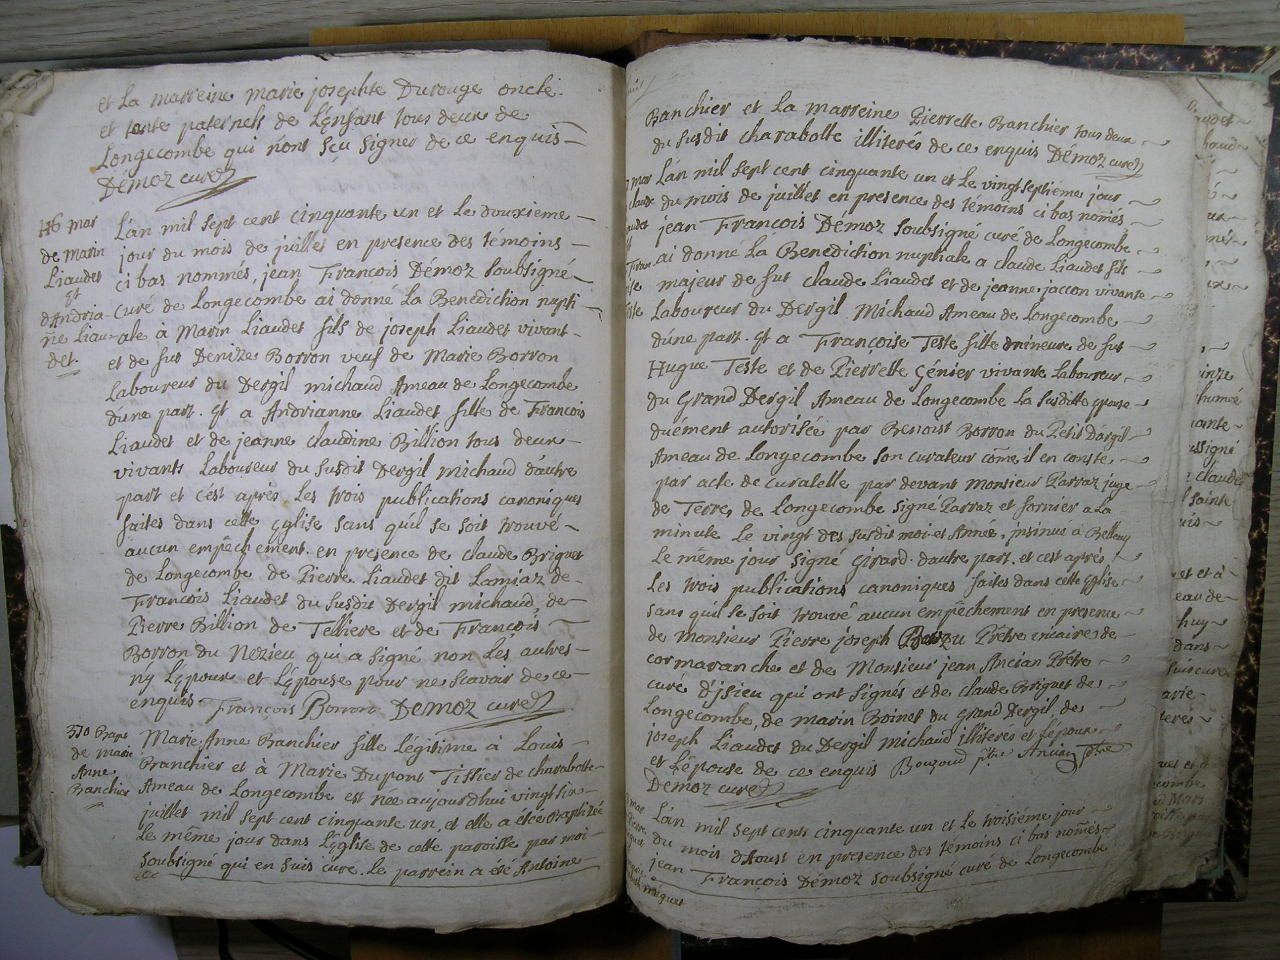 et La marreine marie josephte Durouge oncle
et tante paternels de L'ęnfant tous deux de
Longecombe qui n'ont sęu signer de ce enquis
Démoz curé
116 mar
de Marin
Liaudet
et
d'Andria-
ne Liau-
det.
L'an mil sept cent cinquante un et Le douxieme
jour du mois de juillet en presence des témoins
ci bas nommés, jean François Démoz Soubsigné
curé de Longecombe ai donné La Benediction nupti-
ale à Marin Liaudet fils de joseph Liaudet vivant
et de fut Denize Borron veuf de Marie Borron
Laboureur du Dergil michaud Ameau de Longecombe
d'une part. Et a Andrianne Liaudet fille de François
Liaudet et de jeanne claudine Billion tous deux
vivants Laboureur du Susdit Dergil michaud d'autre
part et c'est aprés Les trois publications canoniques
faites dans cette Eglise sans qu'il se soit trouvé
aucun empêchement. en presence de claude Briguet
de Longecombe de Pierre Liaudet dit Lamiaz de
François Liaudet du susdit Dergil michaud, de
Pierre Billion de Telliere et de François
Borron du Nezieu qui a signé non Les autres
ny L'ępoux et L'ępouse pour ne scavoir de ce
enquis François Borron Démoz curé
370 Bap
de marie
Anne
Banchier
Marie Anne Banchier fille Légitime à Louis
Branchier et à Marie Dupont Tissier de charabotte
Ameau de Longecombe est née aujourd'hui vingt six
juillet mil sept cent cinquante un, et elle a etée Baptizée
Le même jour dans L'ęglise de cette paroisse par moi
Soubsigné qui en suis curé. Le parrein a été Antoine
Banchier et La marreine Pierrette Banchier tous deux
du susdit charabotte illiterés de ce enquis Démoz curé
L'an mil sept cent cinquante un et Le vingt septiéme jour
du mois de juillet en presence des témoins ci bas només
jean François Démoz Soubsigné curé de Longecombe
ai donné La Benediction nuptiale a claude Liaudet fils
majeur de fut claude Liaudet et de jeanne jaccon vivante
Laboureur du Dergil Michaud Ameau de Longecombe
d'une part. Et a Françoise Teste fille mineure de fut
Hugue Teste et de Pierrette Génier vivante Laboureur
du Grand Dergil Ameau de Longecombe La susditte ępouse
duëment autorisée par Benoist Borron du Petit Dargil
Ameau de Longecombe son curateur côme il en conste
par acte de curatelle par devant Monsieur Parraz juge
de Terre de Longecombe signé Parraz et fornier a La
minute Le vingt des susdit moi et Année, insinué à Belley
Le même jour signé Girard. d'autre part. et c'est aprés
Les trois publications canoniques faites dans cette Eglise
sans qu'il se soit trouvé aucun empêchement en presence
de monsieur Pierre joseph Prêtre vicaire de
cormaranche et de Monsieur jean Ancian Prêtre
curé d'jsieu qui ont signés et de claude Briguet de
Longecombe, de marin Boinet du Grand Dergil, de
joseph Liaudet du Dergil michaud illiteres et L'ępoux
et L'épouse de ce enquis Bouzoud ptre Ancian Prêtre
Démoz curé
L'an mil sept cents cinquante un et Le troisieme jour
du mois d'Aoust en presence des témoins ci bas només
jean François Démoz Soubsigné curé de Longecombe